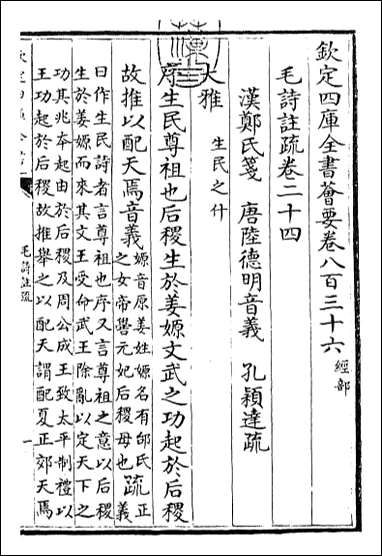 欽定四庫全書薈要卷八百三十六 經部
毛詩註疏卷二十四
漢鄭氏箋 唐陸德明音義 孔穎達疏
大雅 生民之什
序生民尊祖也后稷生於姜嫄文武之功起於后稷
故推以配天焉音義
嫄音原姜姓嫄名有邰氏
之女帝嚳元妃后稷母也
疏
正
義
曰作生民詩者言尊祖也序又言尊祖之意以后稷
生於姜嫄而來其文王受命武王除亂以定天下之
功其兆本起由於后稷及周公成王致太平制禮以
王功起於后稷故推舉之以配天謂配夏正郊天焉
毛詩註疏
一